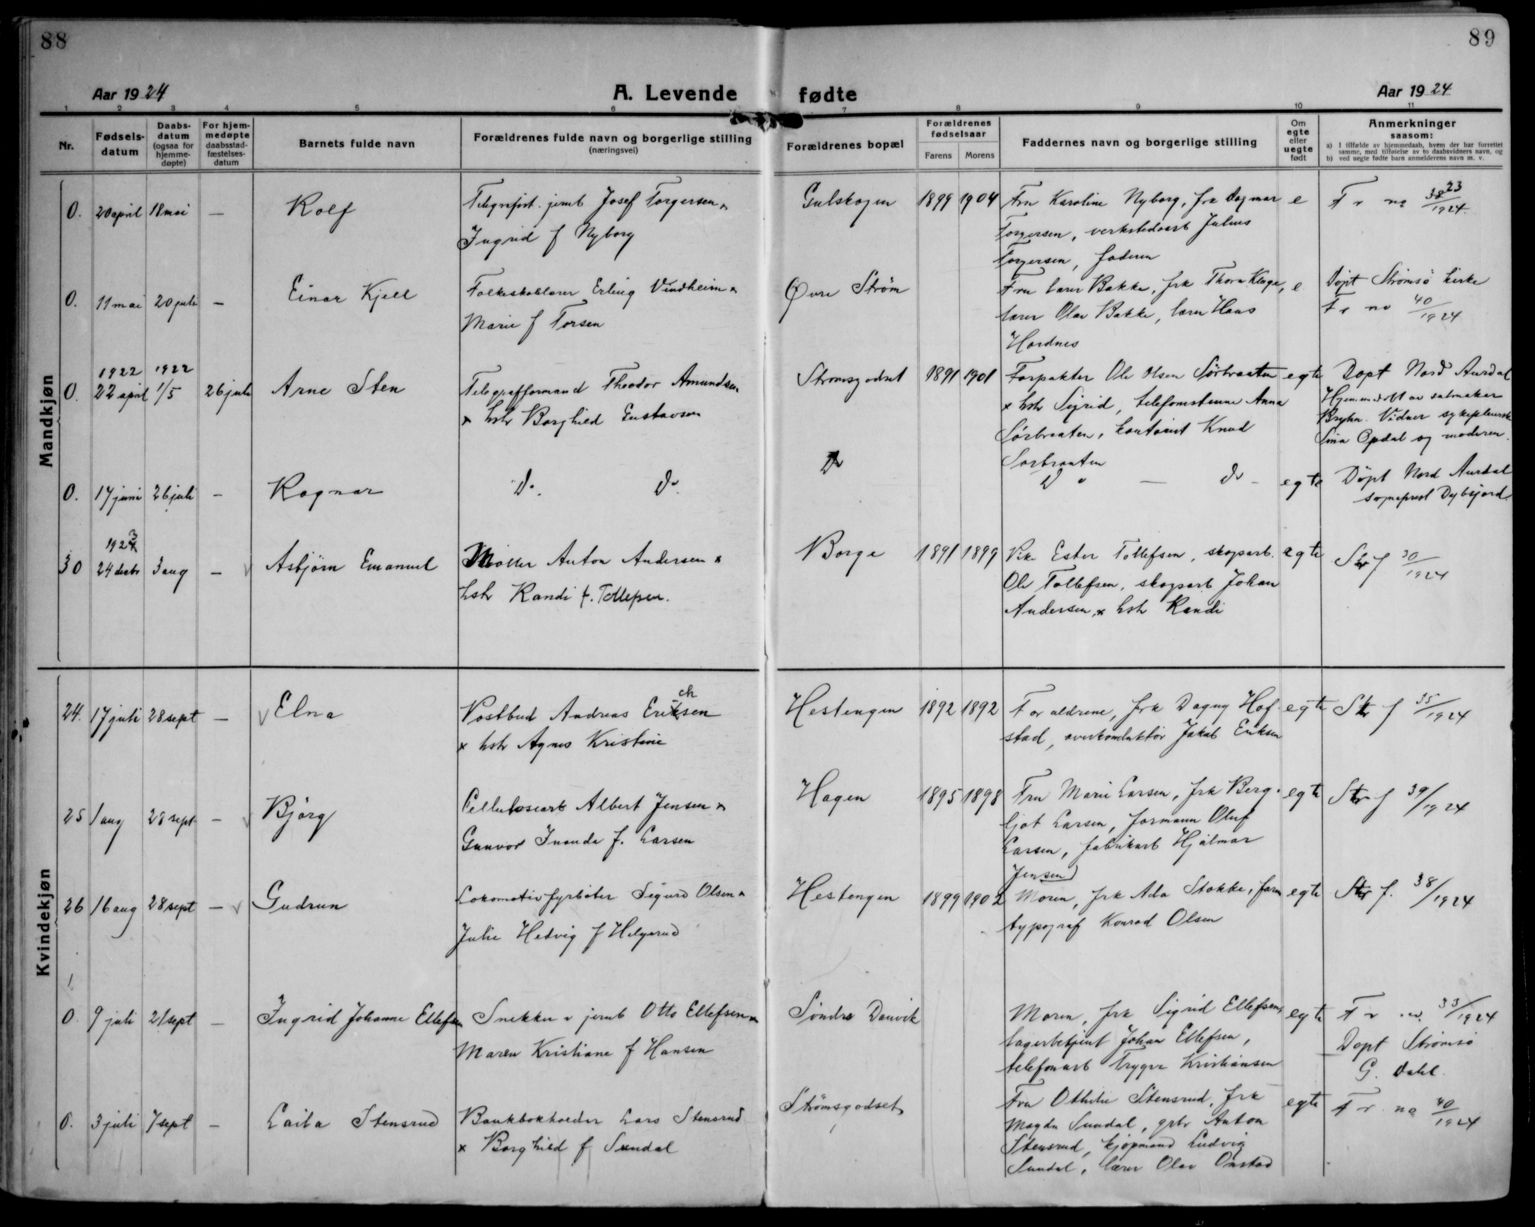 88
89
Aar 1924
A. Levende
fødte
Aar 1924
1 2 3 4 5 6 7 8 9 10 11
Nr.
Fødsels-
datum
Daabs-
datum
(ogsaa for
hjemme-
døpte)
For hjem-
medøpte
daabsstad-
fæstelses-
datum
Barnets fulde navn
Forældrenes fulde navn og borgerlige stilling
(næringsvei)
Forældrenes bopæl
Forældrenes
fødselsaar
Farens
Morens
Faddernes navn og borgerlige stilling
Om
egte
eller
uegte
født
Anmerkninger
saasom:
a) I tilfælde av hjemmedaab, hvem der har forrettet
samme, med tilføielse av to daabsvidners navn, og
b) ved uegte fødte barn anmelderens navn m. v.
Mandkjøn
0. 20 april 18 mai – Rolf
Josef Torgersen x
Ingrid f Nyborg
Gulskogen 1899 1904
Fru Karoline Nyborg, frk Dagmar
Torgersen, verkstedarb Julius
Torgersen, faderen
e
F r no 38 23/1924
0. 11 mai 20 juli – Einar Kjell
Folkeskolelærer Erling Vindheim x
Marie f Torsen
Øvre Strøm
Fru lærer Bakke, frk Thora Klage,
lærer Olav Bakke, lærer Hans
Hordnes
e
Døpt Strømsø kirke
F r no 40/1924
0. 1922 22 april 1922 1/5 26 juli Arne Sten
Telegrafformand Theodor Amundsen
x hstr Borghild Gustavson
Strømsgodset 1891 1901
Forpakter Ole Olsen Sørbraaten
x hstr Sigrid, telefonistinne Anna
Sørbraaten, kontorist Knud
Sørbraaten
egte
Døpt Nord Aurdal
Hjemmedøbt av salmaker
Bryhn. Vidner sykepleiersk
Sina Opdal og moderen.
0. 17 juni 26 juli – Ragnar
do. do.
Do
Do — do –
egte
Døpt Nord Aurdal
sogneprest Dybsjord
30 1923 24 decbr 3 aug – Asbjørn Emanuel
Møller Anton Andersen x
hstr Randi f. Tollefsen.
Borge 1891 1899
Pike Ester Tollefsen, skogsarb.
Ole Tollefsen, skogsarb Johan
Andersen x hstr Randi
egte
Str f 30/1924
Kvindekjøn
24. 17 juli 28 sept – √ Elna
Postbud Andreas Erichsen
x hstr Agnes Kristine
Hestengen 1892 1892
Forældrene, frk Dagny Hof-
stad, overkonduktør Jakob Eriksen
egte
Str f 35/1924
25 1 aug 28 sept – √ Bjørg
Cellulosearb Albert Jensen x
Gunvor Inanda f. Larsen
Hagen 1895 1898
Fru Marie Larsen, frk Berg-
ljot Larsen, formann Oluf
Larsen, fabrikarb Hjalmar
Jensen
egte
Str f 39/1924
26 16 aug 28 sept – √ Gudrun
Lokomotivfyrbøter Sigurd Olsen x
Julie Hedvig f Helgerud
Hestengen 1899 1902
Moren, frk Ada Stokke, faren
typograf Konrad Olsen
egte
Str f. 38/1924
0. 9 juli 21 sept – Ingrid Johanne Ellefsen
Snekker v jernb Otto Ellefsen x
Maren Kristiane f Hansen
Søndre Danvik
Moren, frk Sigrid Ellefsen,
lagerbetjent Johan Ellefsen,
telefonarb Trygve Kristiansen
egte
F r no. 33/1924
Døpt Strømsø
G. Dahl.
0. 3 juli 7 sept – Laila Stensrud
Bankbokholder Lars Stensrud
x Borghild f Sundal
Strømsgodset
Fru Othilie Stensrud, frk
Magda Sundal, grbr Anton
Stensrud, kjøpmand Ludvig
Sundal, lærer Olav Onstad
egte
F r no 40/1924